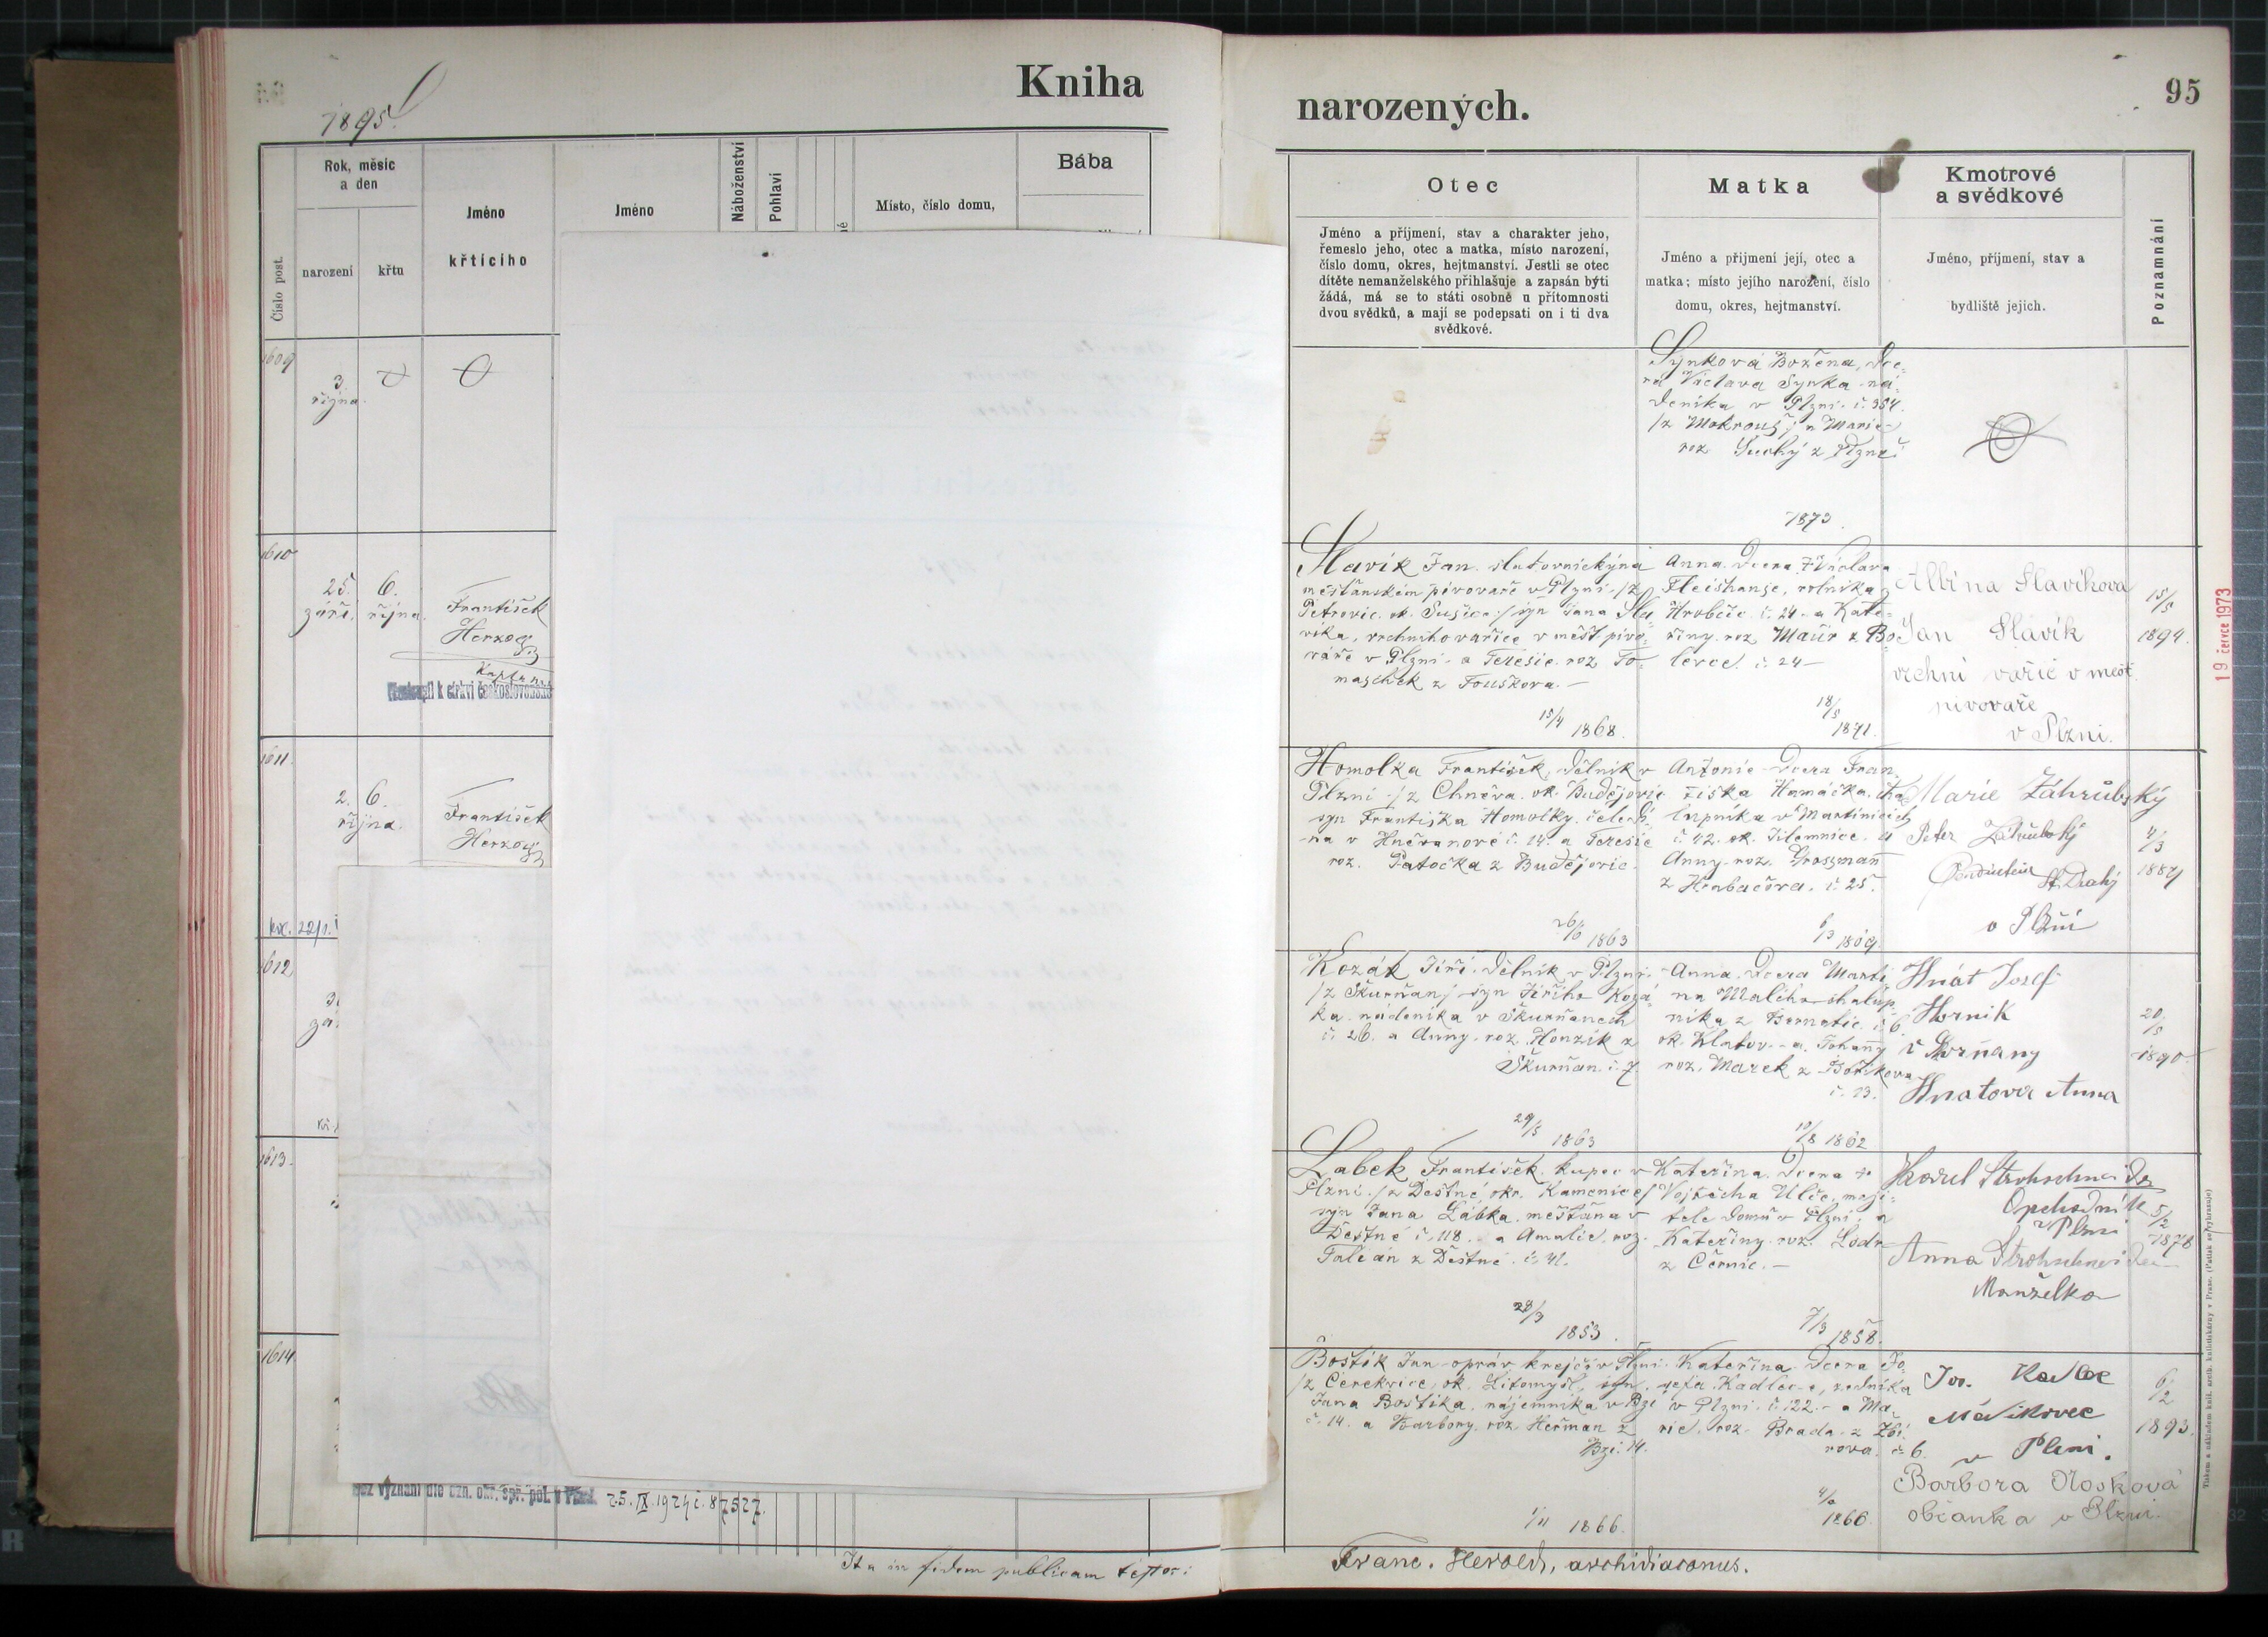 1895
Kniha
Číslo post.
Rok, měsíc
a den
narození
křtu
Jméno
křtícího
Jméno
Náboženství
Pohlaví
Místo, číslo domu,
Bába
1609
3.
října
1610
25.
září
6.
října
František
Herzog
1611
2.
října
6.
František
Herzog
1612
1613
1614
25. IX. 1924 č. 87527.
Ita in fidem publicam testor:
narozených.
95
Otec
Jméno a příjmení, stav a charakter jeho,
řemeslo jeho, otec a matka, místo narození,
číslo domu, okres, hejtmanství. Jestli se otec
dítěte nemanželského přihlašuje a zapsán býti
žádá, má se to státi osobně u přítomnosti
dvou svědků, a mají se podepsati on i ti dva
svědkové.
Matka
Jméno a příjmení její, otec a
matka; místo jejího narození, číslo
domu, okres, hejtmanství.
Kmotrové
a svědkové
Jméno, příjmení, stav a
bydliště jejich.
Poznamnání
Synková Božena, dce-
ra Václava Synka ná-
deníka v Plzni č. 354.
a Marie
roz. Suchý z Plzně
1873
Slavík Jan
městanském pivovaře v Plzni /z
Petrovic ok. Sušice/ syn Jana Sla
víka, vrchního vařiče v měšt. pivo-
váře v Plzni a Terezie roz. To-
maschek z Touškova.
15/4 1868.
Anna dcera † Václava
Fleishanse, rolníka z
Hrobčic č. 24 a Kate-
řiny roz. Maur z Bo
levce č. 24
18/5
1871.
Albína Slavíkova
Jan Slavík
vrchní vařič v měšt.
pivovaře
v Plzni.
15/5
1894.
19 července 1973
Homolka František, dělník v
Plzni /z Chněva ok. Budějovic
syn Františka Homolky čeledí-
na v Hněvanově č. 14. a Terezie
roz. Patočka z Budějovic.
26/6 1863
Antonie dcera Fran-
tiška Hamáčka
v Martinicích
č. 42. ok. Jilemnice a
Anny roz. Groszmann
z Hrabačova č. 25.
1869.
Marie Záhrubský
Peter Záhrubský
Conducteur St. Drahý
v Plzni
4/3
1889
Kozák Jiří dělník v Plzni
/z Škurňan/ syn Jiřího Kozá-
ka nádeníka v Škurňanech
č. 26. a Anny roz. Honzík z
Škurňan č. 7.
29/5 1863
Anna dcera Marti-
na Malého chalup
níka z Bernatic č. 6.
ok. Klatov a Johanny
roz. Marek z Bořikova
č. 23.
10/8 1862
Hnát Josef
Horník
Hnatova Anna
20/5
1890
Labek František kupec v
Plzni /z Deštné okr. Kamenice/
syn Jana Lábka měštana v
Deštné č. 118. a Amalie roz.
Falián z Deštné č. 41.
28/3
1853.
Kateřina dcera †
Vojtěcha Ulče, maji-
tele domu v Plzni a
Kateřiny roz. Lodr
z Černic.
7/3 1858.
Karel Strohschneider
Opchodník
v Plzni
Anna Strohschneider
Manželka
5/2
1878
Boštík Jan opráv. krejčí v Plzni
/z Cerekvice, ok. Litomyšl, syn
Jana Boštíka, nájemníka v Bzí
č. 14. a Barbory roz. Heřman z
Bzí 14.
1/11 1866.
Kateřina dcera Jo-
sefa Kadlece, zedníka
v Plzni č. 122. a Ma-
rie roz. Brada z Zbí-
rova č. 6.
1866
Jos. Kadlec
v Plzni.
Barbora Nosková
občanka v Plzni.
6/2
1893.
Franc. Herold, archidiaconus.